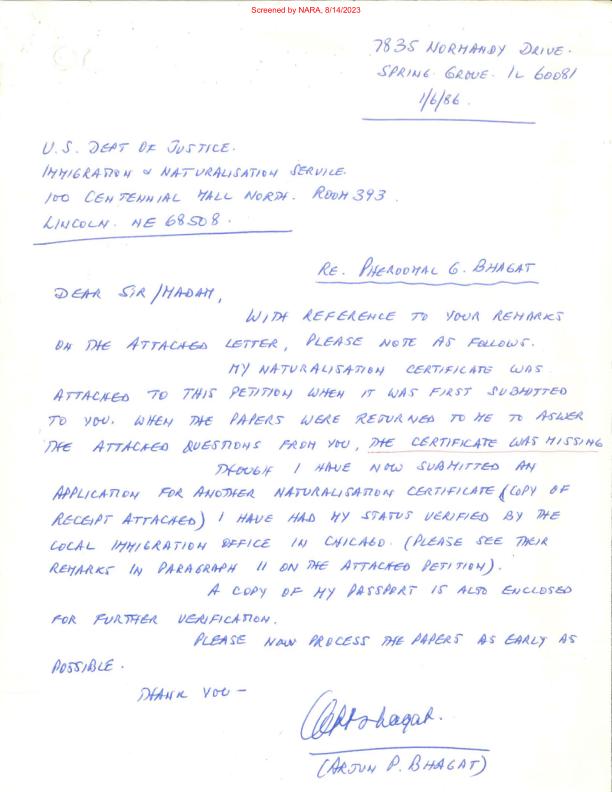 Screened by NARA, 8/14/2023
7835 NORMANDY DRIVE.
SPRING GROVE. IL 60081
1/6/86.
U.S. DEPT OF JUSTICE.
IMMIGRATION & NATURALISATION SERVICE.
100 CENTENNIAL MALL NORTH. ROOM 393.
LINCOLN. NE 68508.
RE. PHEROOMAL G. BHAGAT
DEAR SIR/MADAM,
WITH REFERENCE TO YOUR REMARKS
ON THE ATTACHED LETTER, PLEASE NOTE AS FOLLOWS.
MY NATURALISATION CERTIFICATE WAS
ATTACHED TO THIS PETITION WHEN IT WAS FIRST SUBMITTED
TO YOU. WHEN THE PAPERS WERE RETURNED TO ME TO ASWER
THE ATTACHED QUESTIONS FROM YOU, THE CERTIFICATE WAS MISSING
THOUGH I HAVE NOW SUBMITTED AN
APPLICATION FOR ANOTHER NATURALISATION CERTIFICATE (COPY OF
RECEIPT ATTACHED) I HAVE HAD MY STATUS VERIFIED BY THE
LOCAL IMMIGRATION OFFICE IN CHICAGO. (PLEASE SEE THEIR
REMARKS IN PARAGRAPH 11 ON THE ATTACHED PETITION).
A COPY OF MY PASSPORT IS ALSO ENCLOSED
FOR FURTHER VERIFICATION.
PLEASE NOW PROCESS THE PAPERS AS EARLY AS
POSSIBLE.
THANK YOU -
(ARJUN P. BHAGAT)